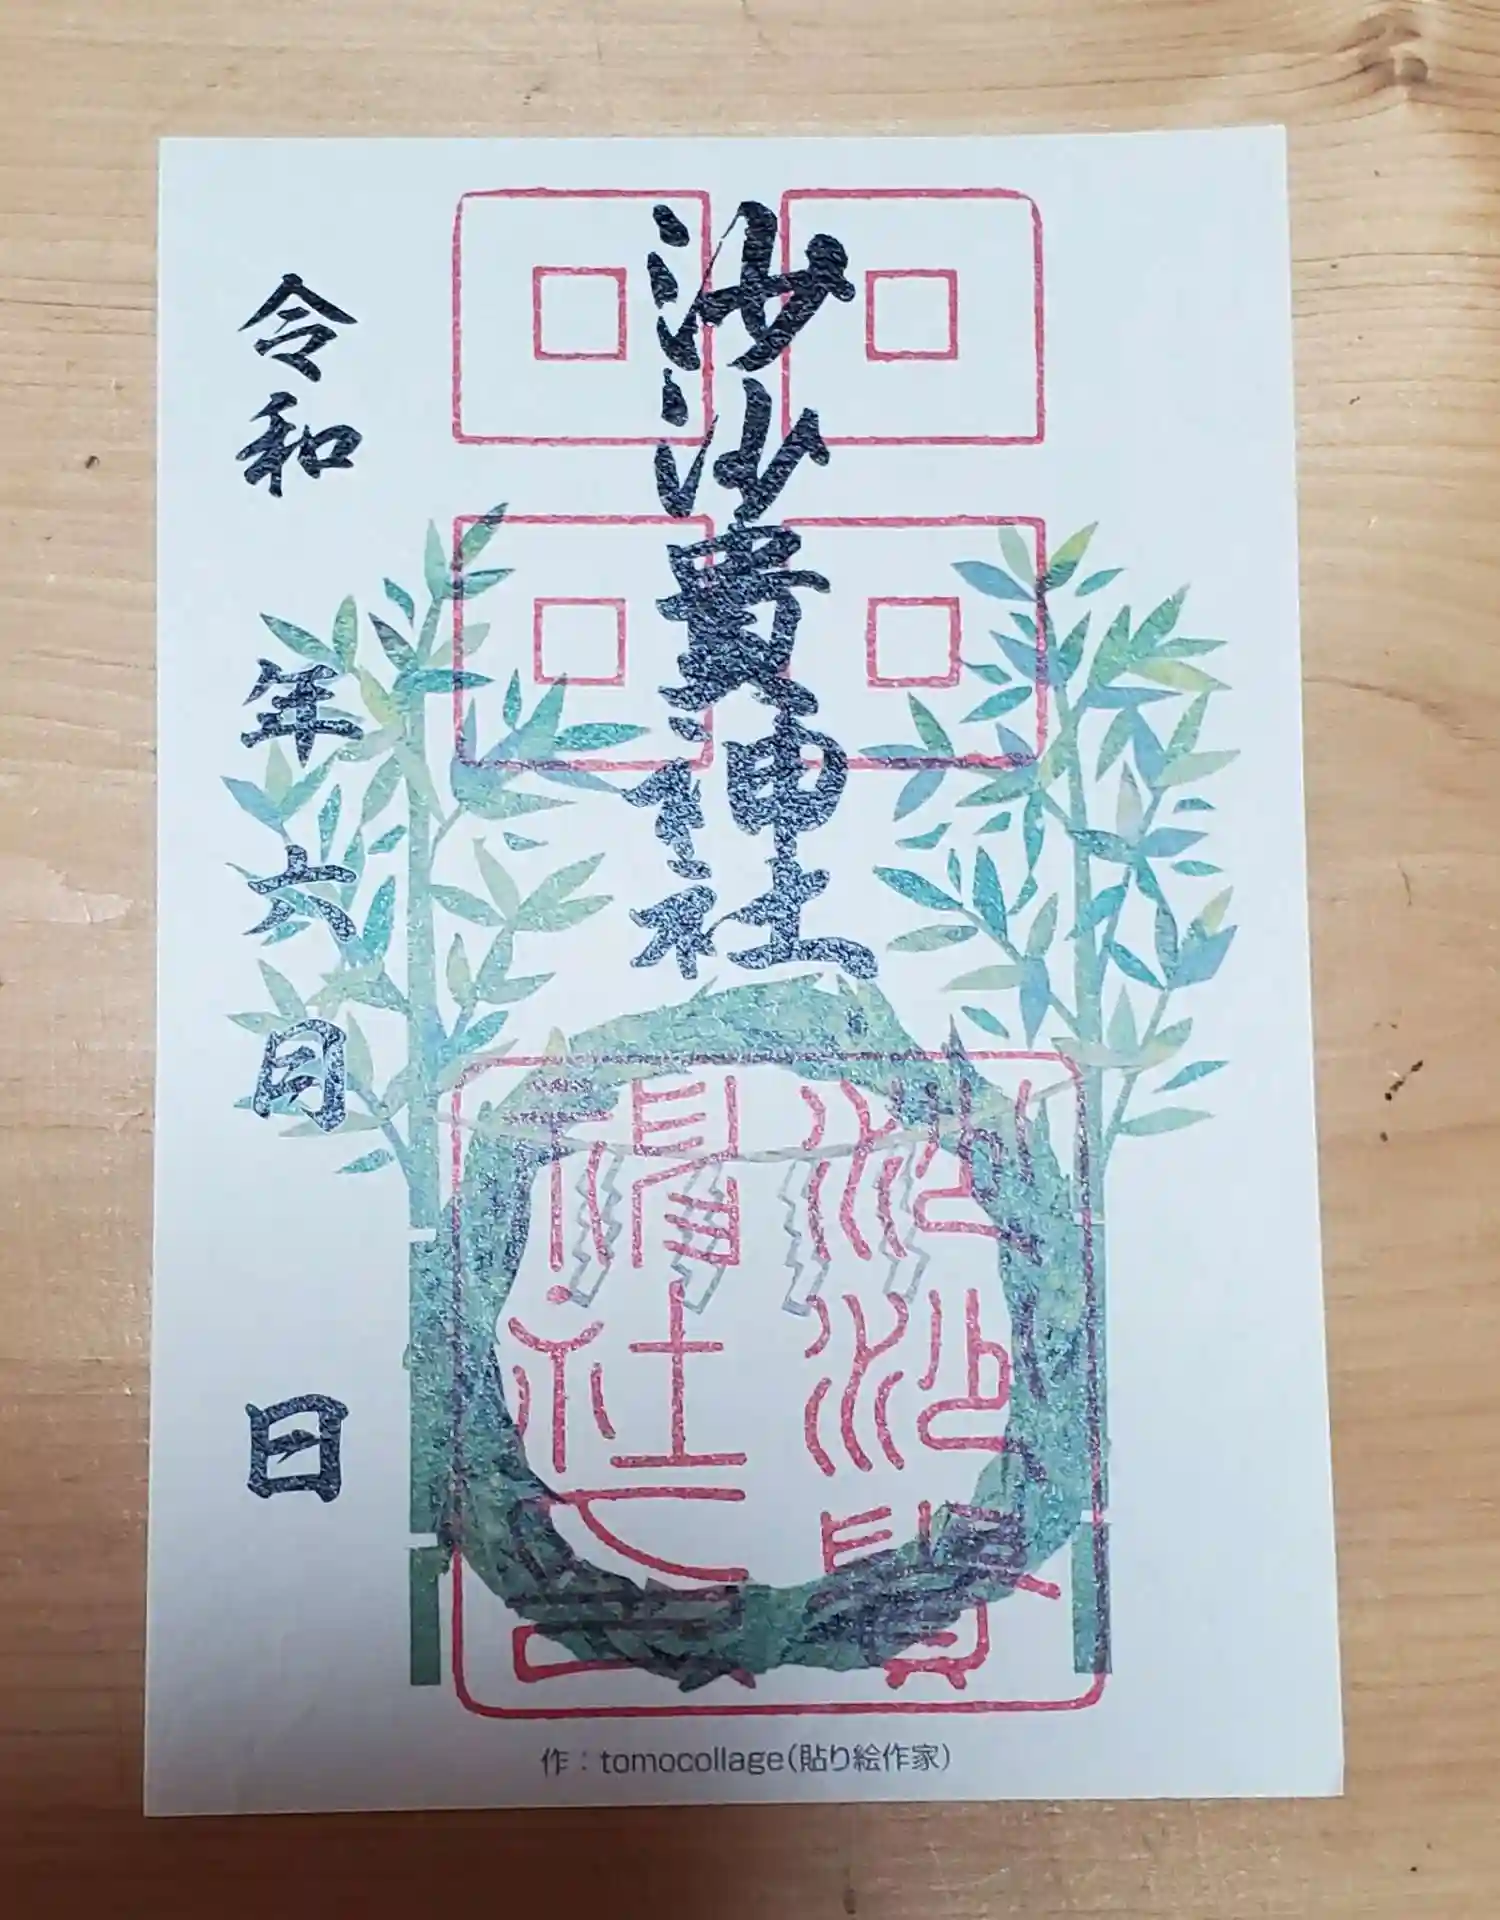 沙沙貴神社
令和 年六月 日
作：tomocollage(貼り絵作家)